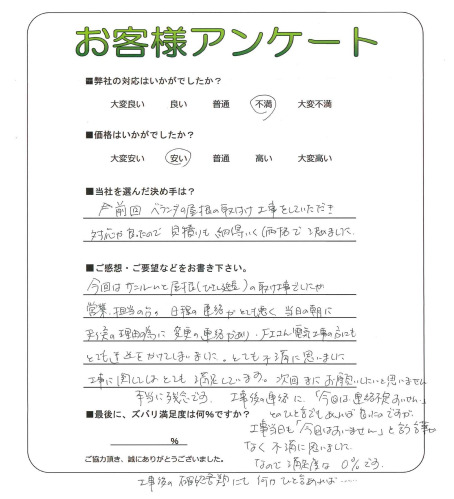 お客様アンケート
■弊社の対応はいかがでしたか？
大変良い 良い 普通 不満 大変不満
■価格はいかがでしたか？
大変安い 安い 普通 高い 大変高い
■当社を選んだ決め手は？
前回 ベランダの屋根の取付け工事をしていただき
対応が良かったので 見積りも納得いく価格で決めました
■ご感想・ご要望などをお書き下さい。
今回はサンルームと屋根の取付け工事でしたが
営業担当の方の 日程の連絡がとても悪く 当日の朝に
天候の理由の為に 変更の連絡があり、エアコン電気工事の方にも
とても迷惑をかけてしまいました。とても不満に思いました
工事に関してはとても満足しています。次回またお願いしたいと思いません
本当に残念です。工事後の連絡に、「今回は連絡遅くすいません」
とのひと言でもあれば良いのですが、
■最後に、ズバリ満足度は何％ですか？
工事当日も「今日はすいません」と言う言葉
なく 不満に思いました
％
なので満足度は 0％です。
ご協力頂き、誠にありがとうございました。
工事後の確認書類にも 何かひと言あれば……